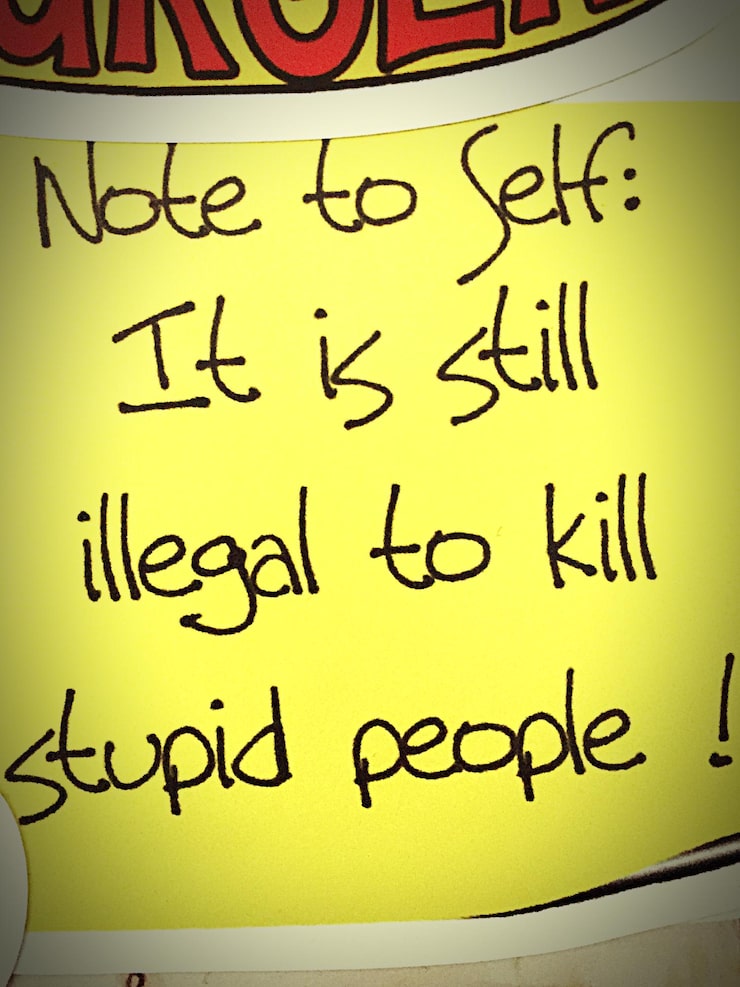 Note to Self:
It is still
illegal to kill
stupid people !